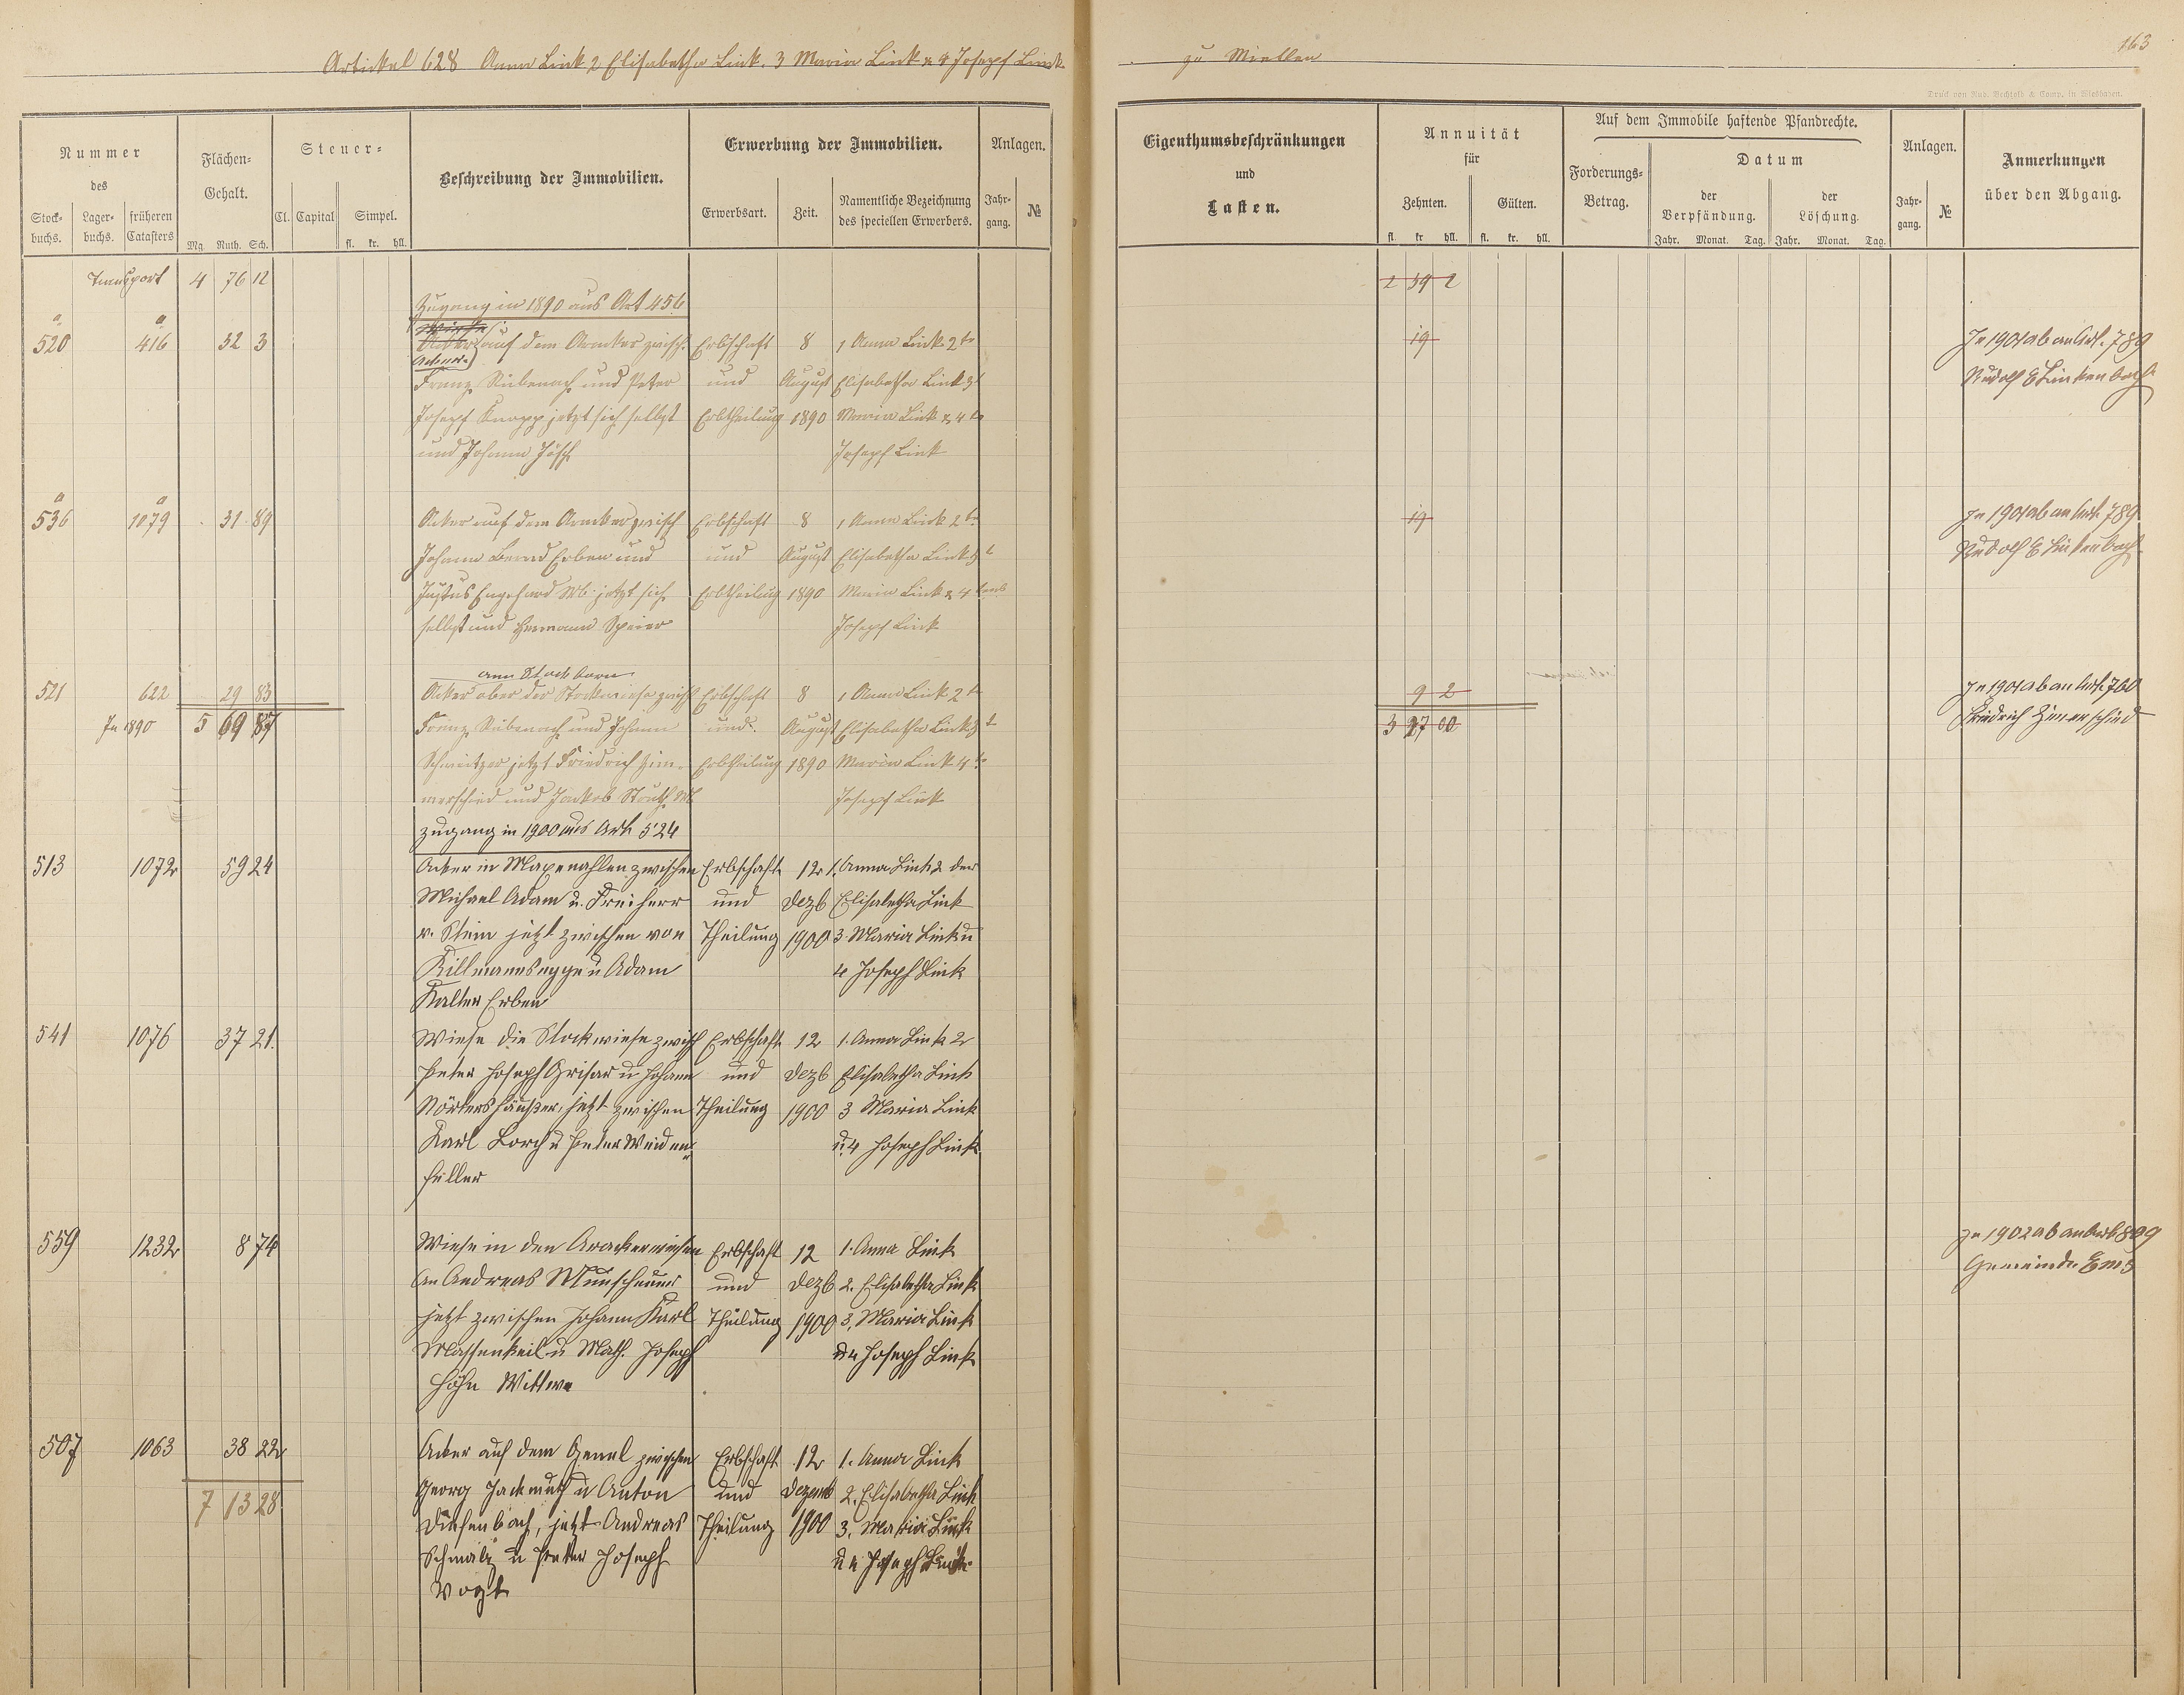 Artikel 628 Anna Link 2 Elisabetha Link. 3 Maria Link u 4 Josepf Link
zu Miellen
163
Druck von Rud. Bechtold & Comp. in Wiesbaden.
Nummer
des
Stock-
buchs.
Lager-
buchs.
früheren
Catasters
Flächen-
Gehalt.
Mg. Ruth. Sch.
Steuer-
Cl. Capital Simpel.
fl. kr. hll.
Beschreibung der Immobilien.
Erwerbung der Immobilien.
Erwerbsart. Zeit.
Namentliche Bezeichnung
des speciellen Erwerbers.
Anlagen.
Jahr-
gang.
№
Eigenthumsbeschränkungen
und
Lasten.
Annuität
für
Zehnten. Gülten.
fl. kr hll. fl. kr. hll.
Auf dem Immobile haftende Pfandrechte.
Forderungs-
Betrag.
Datum
der
Verpfändung.
der
Löschung.
Jahr. Monat. Tag. Jahr. Monat. Tag.
Anlagen.
Jahr-
gang.
№
Anmerkungen
über den Abgang.
Transport 4 76 12 2 39 2
Zugang in 1890 aus Art 456
Wiese
a a
520 416 32 3 Acker auf dem Armker zwisch. Erbschaft 8 1 Anna Link 2te 19 In 1901 ab an Art. 789
Acker
Franz Rübenach und Peter und August Elisabetha Link 3t Rudolf Linkenbach
Josepf Knopp jetzt sich selbst Erbtheilung 1890 Maria Link & 4te
und Johann Jösch Josepf Link
a a
536 1079 31 89 Acker auf dem Armker zwisch Erbschaft 8 1 Anna Link 2te 19 In 1901 ab an Art. 789
Johann Bernd Erben und und August Elisabetha Link 3t Rudolf Linkenbach
Justus Engehard Wb. jetzt sich Erbtheilung 1890 Maria Link & 4tens
selbst und Hermann Speier Josepf Link
am Stockborn
521 622 29 83 Acker ober der Stockwiese zwisch Erbschaft 8 1 Anna Link 2te 9 2 In 1901 ab an Art. 760
In 1890 5 69 87 Franz Rübenach und Johann und August Elisabetha Link 3t 3 27 00 Friedrich Zimerschied
Schweitzer jetzt Friedrich Zim- Erbtheilung 1890 Maria Link 4te
merschied und Jackob Stouth Wb Josepf Link
Zugang in 1900 aus Art 524
513 1072 59 24 Acker in Maxenahlen zwischen Erbschaft 12 1. Anna Link 2 der
Michael Adam u. Freiherr und Dezb Elisabetha Link
v. Stein jetzt zwischen von Theilung 1900 3. Maria Link u
Killmannsegge u Adam 4 Joseph Link
Kalter Erben
541 1076 37 21. Wiese die Stockwiese zwisch Erbschaft 12 1. Anna Link 2
Peter Joseph Grisar u Johann und Dezb Elisabetha Link
Nörtershäußer, jetzt zwischen Theilung 1900 3 Maria Link
Karl Lorch u Peter Weiden- u. 4 Joseph Link
füller
559 1232 8 74 Wiese in den Arackerwiesen Erbschaft 12 1. Anna Link In 1902 ab an Art 809
an Andreas Munscheuer und Dezb 2. Elisabetha Link Gemeinde Ems
jetzt zwischen Johann Karl Theilung 1900 3. Maria Link
Massenkeil u Math. Joseph u 4 Joseph Link
Höhn Wittwe
507 1063 38 22 Acker auf dem Genel zwischen Erbschaft 12 1. Anna Link
Georg Jackmuth u Anton und Dezemb 2. Elisabetha Link
7 13 28 Diefenbach, jetzt Andreas Theilung 1900 3. Maria Link
Schmalz u Peter Joseph u 4 Joseph Link
Vogt